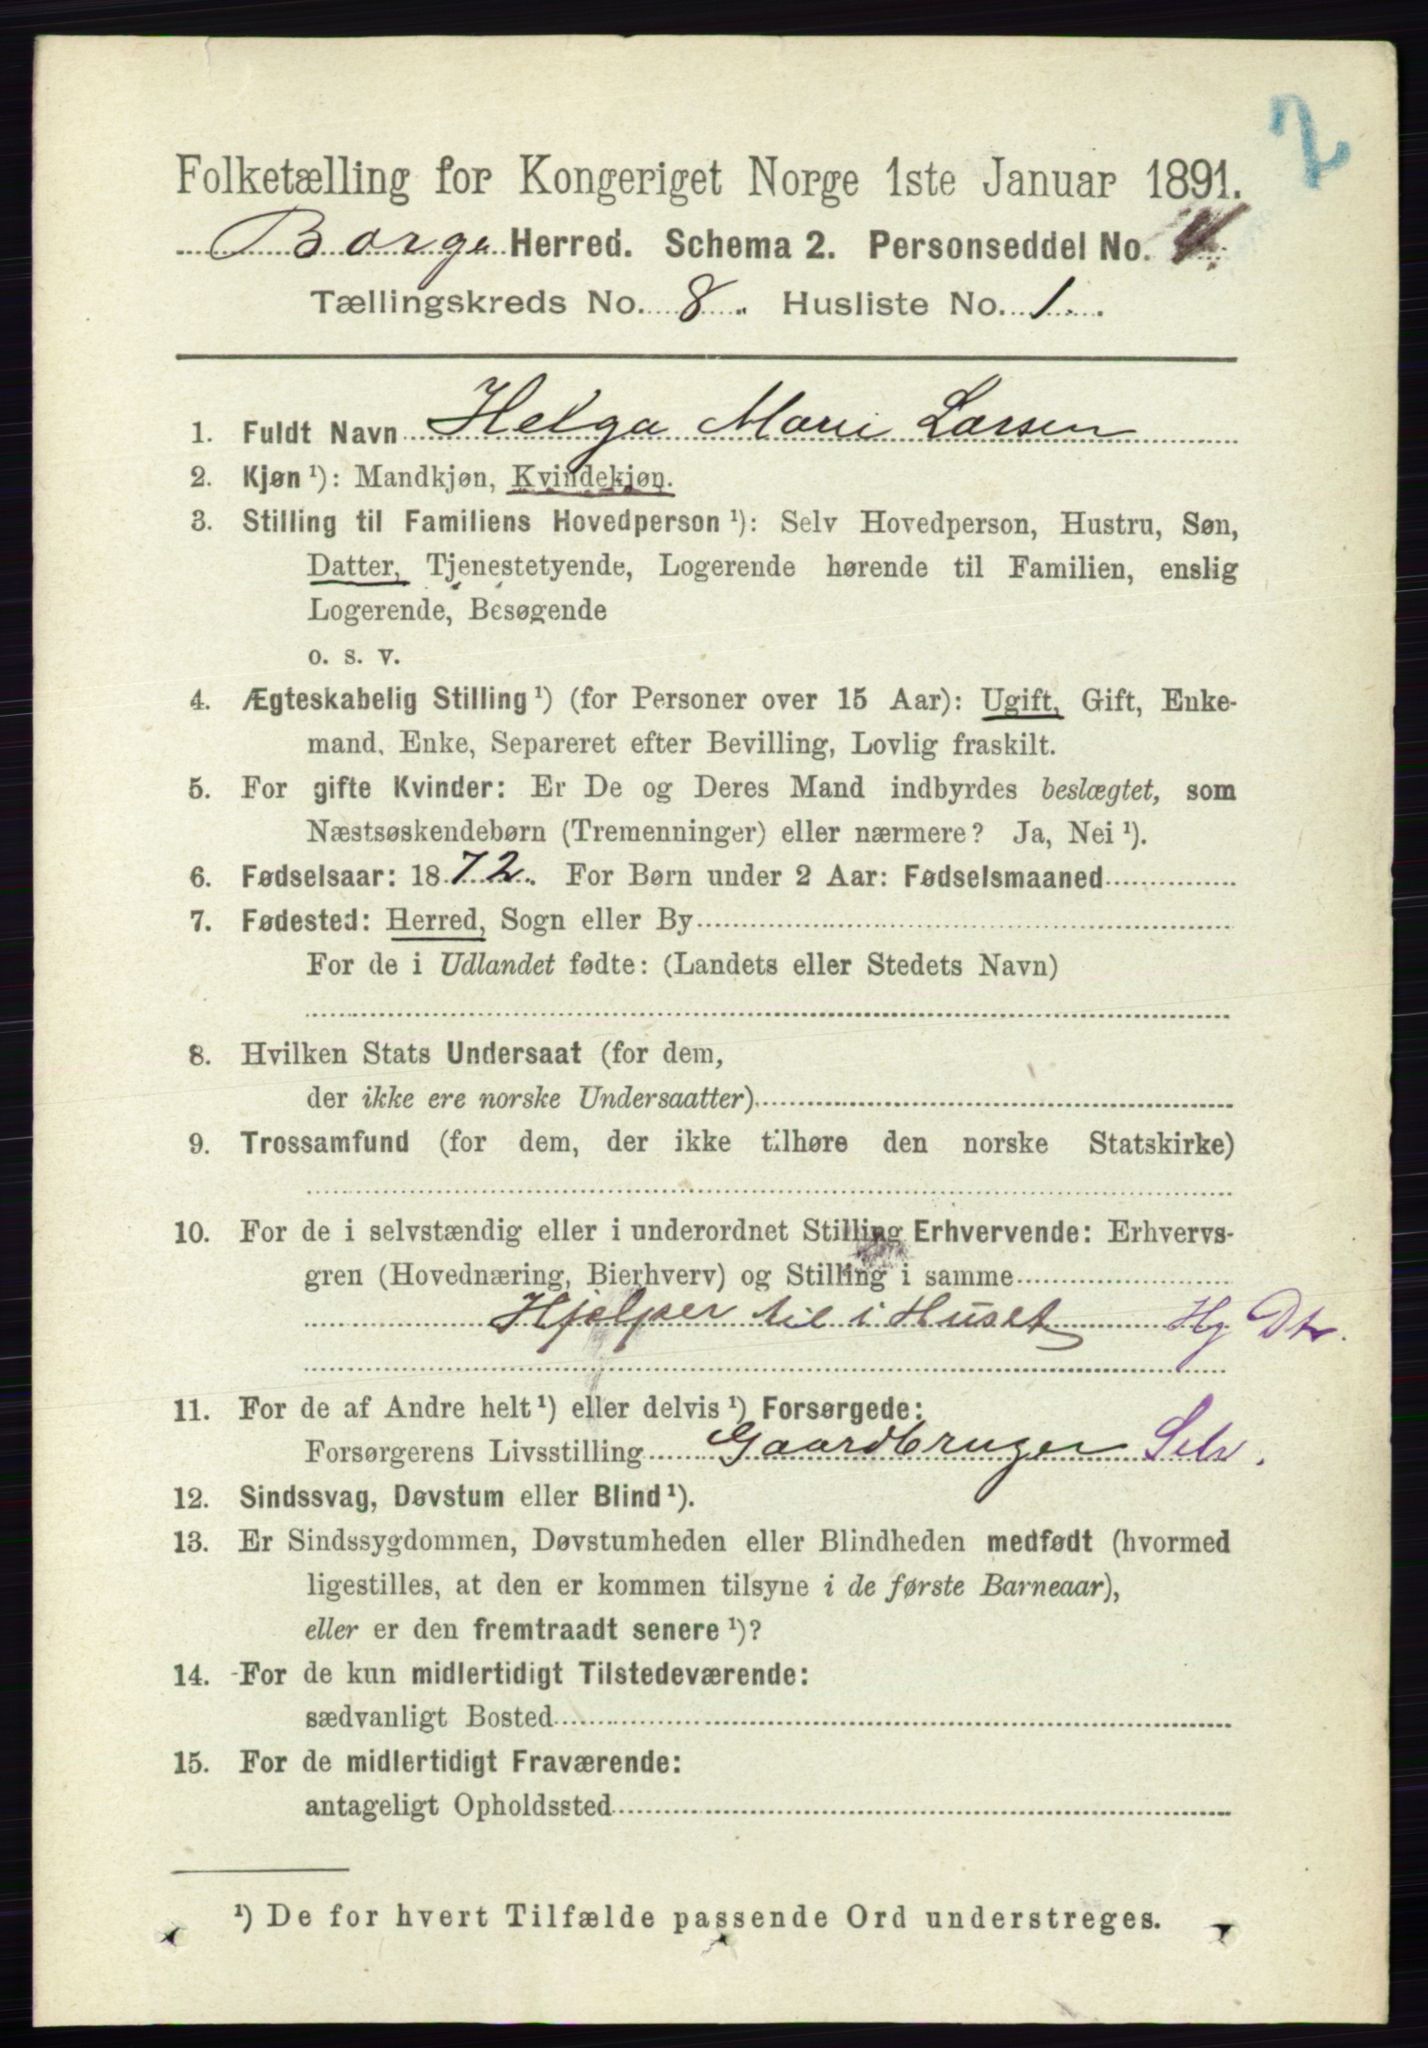 2
Folketælling for Kongeriget Norge 1ste Januar 1891.
Borge Herred. Schema 2. Personseddel No. 4.
Tællingskreds No. 8. Husliste No. 1.
1. Fuldt Navn Helga Marie Larsen
2. Kjøn ¹): Mandkjøn, Kvindekjøn.
3. Stilling til Familiens Hovedperson ¹): Selv Hovedperson, Hustru, Søn,
Datter, Tjenestetyende, Logerende hørende til Familien, enslig
Logerende, Besøgende
o. s. v.
4. Ægteskabelig Stilling ¹) (for Personer over 15 Aar): Ugift, Gift, Enke-
mand, Enke, Separeret efter Bevilling, Lovlig fraskilt.
5. For gifte Kvinder: Er De og Deres Mand indbyrdes beslægtet, som
Næstsøskendebørn (Tremenninger) eller nærmere? Ja, Nei ¹).
6. Fødselsaar: 1872. For Børn under 2 Aar: Fødselsmaaned
7. Fødested: Herred, Sogn eller By
For de i Udlandet fødte: (Landets eller Stedets Navn)
8. Hvilken Stats Undersaat (for dem,
der ikke ere norske Undersaatter)
9. Trossamfund (for dem, der ikke tilhøre den norske Statskirke)
10. For de i selvstændig eller i underordnet Stilling Erhvervende: Erhvervs-
gren (Hovednæring, Bierhverv) og Stilling i samme
Hjelper til i Huset Hg Dtr.
11. For de af Andre helt ¹) eller delvis ¹) Forsørgede:
Forsørgerens Livsstilling Gaardbruger Selv.
12. Sindssvag, Døvstum eller Blind ¹).
13. Er Sindssygdommen, Døvstumheden eller Blindheden medfødt (hvormed
ligestilles, at den er kommen tilsyne i de første Barneaar),
eller er den fremtraadt senere ¹)?
14. For de kun midlertidigt Tilstedeværende:
sædvanligt Bosted
15. For de midlertidigt Fraværende:
antageligt Opholdssted
¹) De for hvert Tilfælde passende Ord understreges.